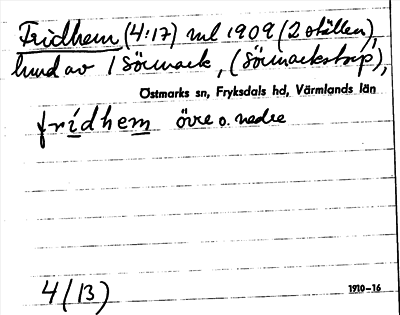 Fridhem (4:17) ml 1909 (2 ställen),
hund av 1 Sörmark, (Sörmarkstorp),
Östmarks sn, Fryksdals hd, Värmlands län
fridhem övre o. nedre
4 (13)
1910-16